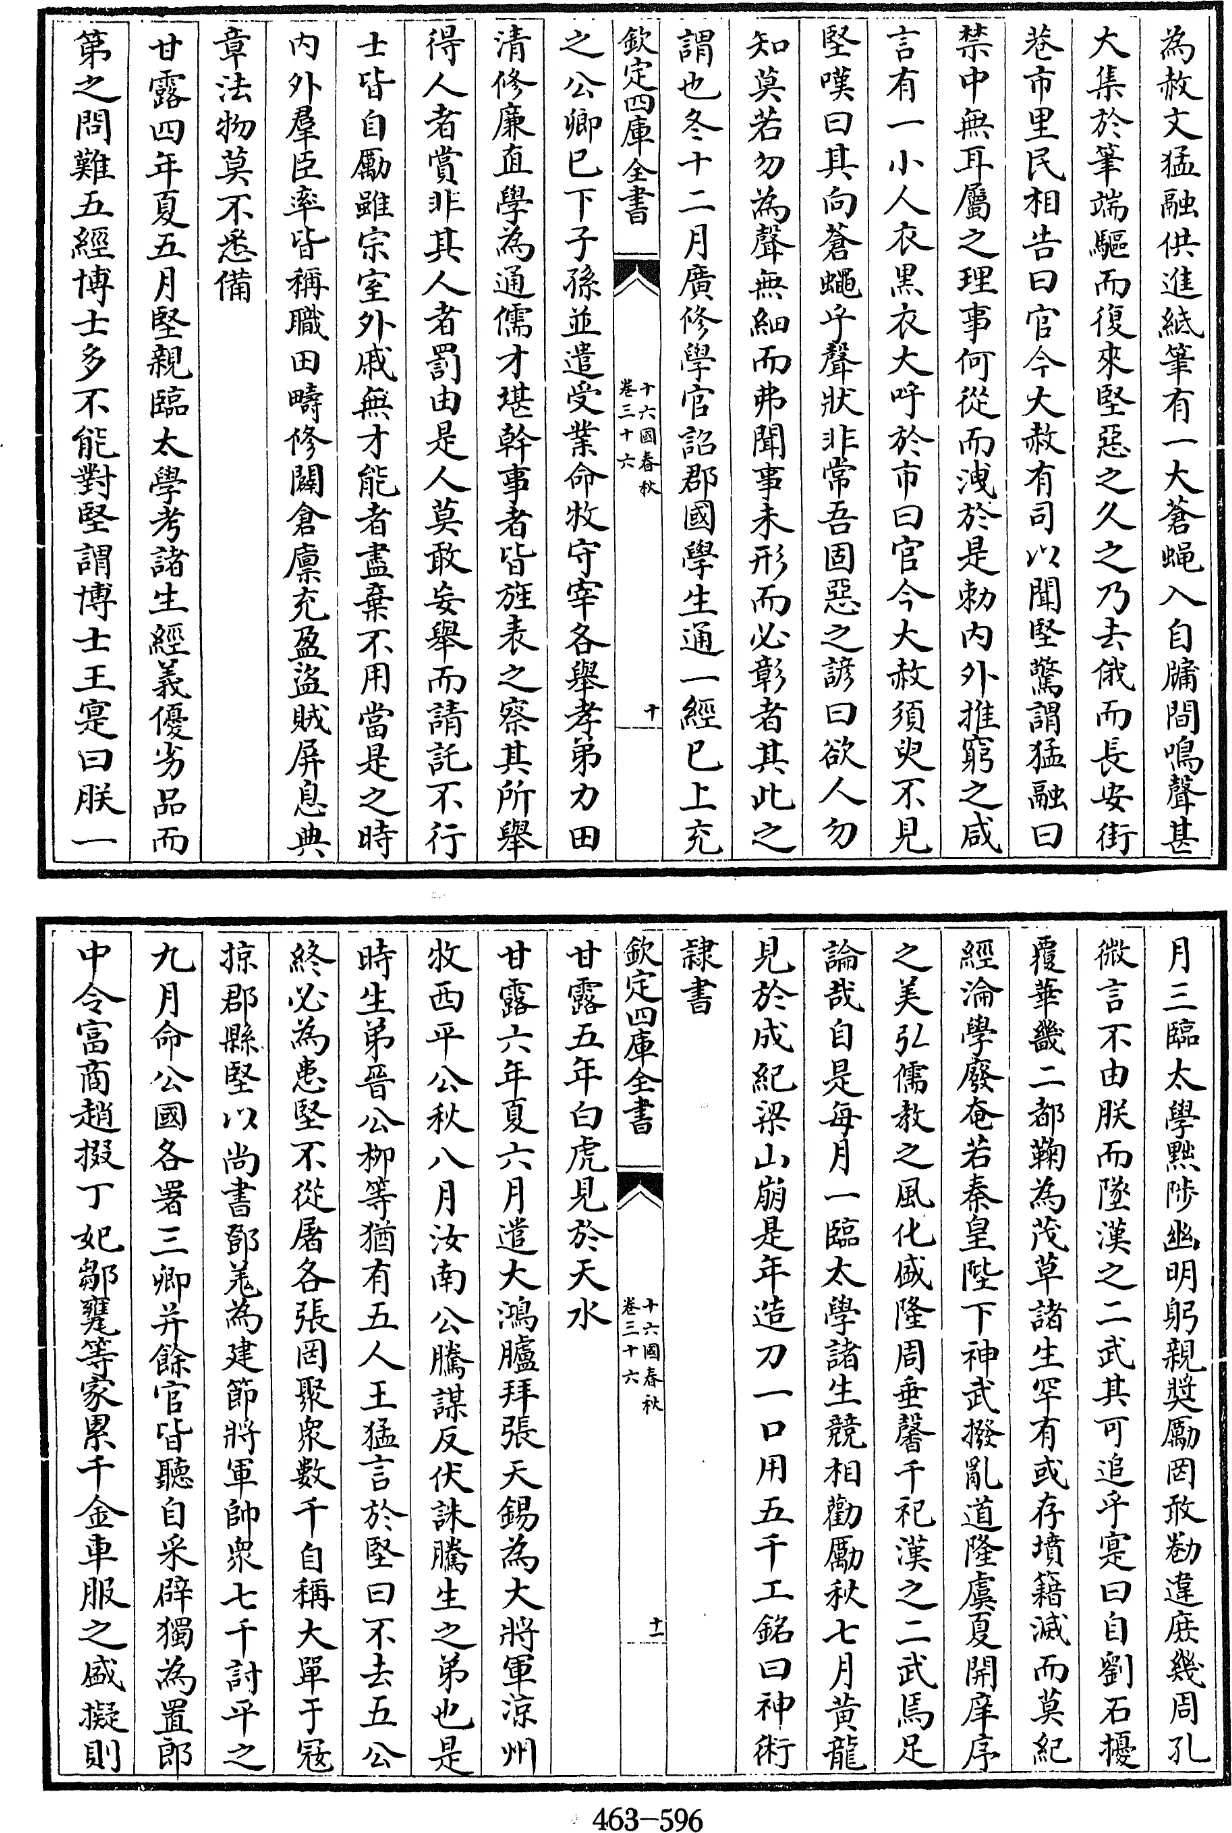 為赦文猛融供進紙筆有一大蒼蝇入自牖間鳴聲甚
大集於筆端驅而復來堅惡之久之乃去俄而長安街
巷市里民相告曰官今大赦有司以聞堅驚謂猛融曰
禁中無耳屬之理事何從而洩於是勅内外推窮之咸
言有一小人衣黒衣大呼於市曰官今大赦須臾不見
堅嘆曰其向蒼蠅乎聲狀非常吾固惡之諺曰欲人勿
知莫若勿為聲無細而弗聞事未形而必彰者其此之
謂也冬十二月廣修學官詔郡國學生通一經已上充
欽定四庫全書
十六國春秋
卷三十六
十
之公卿已下子孫並遣受業命牧守宰各舉孝弟力田
清修廉直學為通儒才堪幹事者皆旌表之察其所舉
得人者賞非其人者罰由是人莫敢妄舉而請託不行
士皆自勵雖宗室外戚無才能者盡棄不用當是之時
内外羣臣率皆稱職田疇修闢倉廪充盈盜賊屏息典
章法物莫不悉備
甘露四年夏五月堅親臨太學考諸生經義優劣品而
第之問難五經博士多不能對堅謂博士王寔曰朕一
月三臨太學黜陟幽明躬親奬勵罔敢勌違庶幾周孔
微言不由朕而墜漢之二武其可追乎寔曰自劉石擾
覆華畿二都鞠為茂草諸生罕有或存墳籍滅而莫紀
經淪學廢奄若秦皇陛下神武撥亂道隆虞夏開庠序
之美弘儒教之風化盛隆周垂馨千祀漢之二武焉足
論哉自是每月一臨太學諸生競相勸勵秋七月黄龍
見於成紀梁山崩是年造刀一口用五千工銘曰神術
隸書
欽定四庫全書
十六國春秋
卷三十六
十一
甘露五年白虎見於天水
甘露六年夏六月遣大鴻臚拜張天錫為大將軍涼州
牧西平公秋八月汝南公騰謀反伏誅騰生之弟也是
時生弟晉公柳等猶有五人王猛言於堅曰不去五公
終必為患堅不從屠各張罔聚衆數千自稱大單于冦
掠郡縣堅以尚書鄧羗為建節將軍帥衆七千討平之
九月命公國各署三卿并餘官皆聽自采辟獨為置郎
中令富商趙掇丁妃鄒甕等家累千金車服之盛擬則
463-596